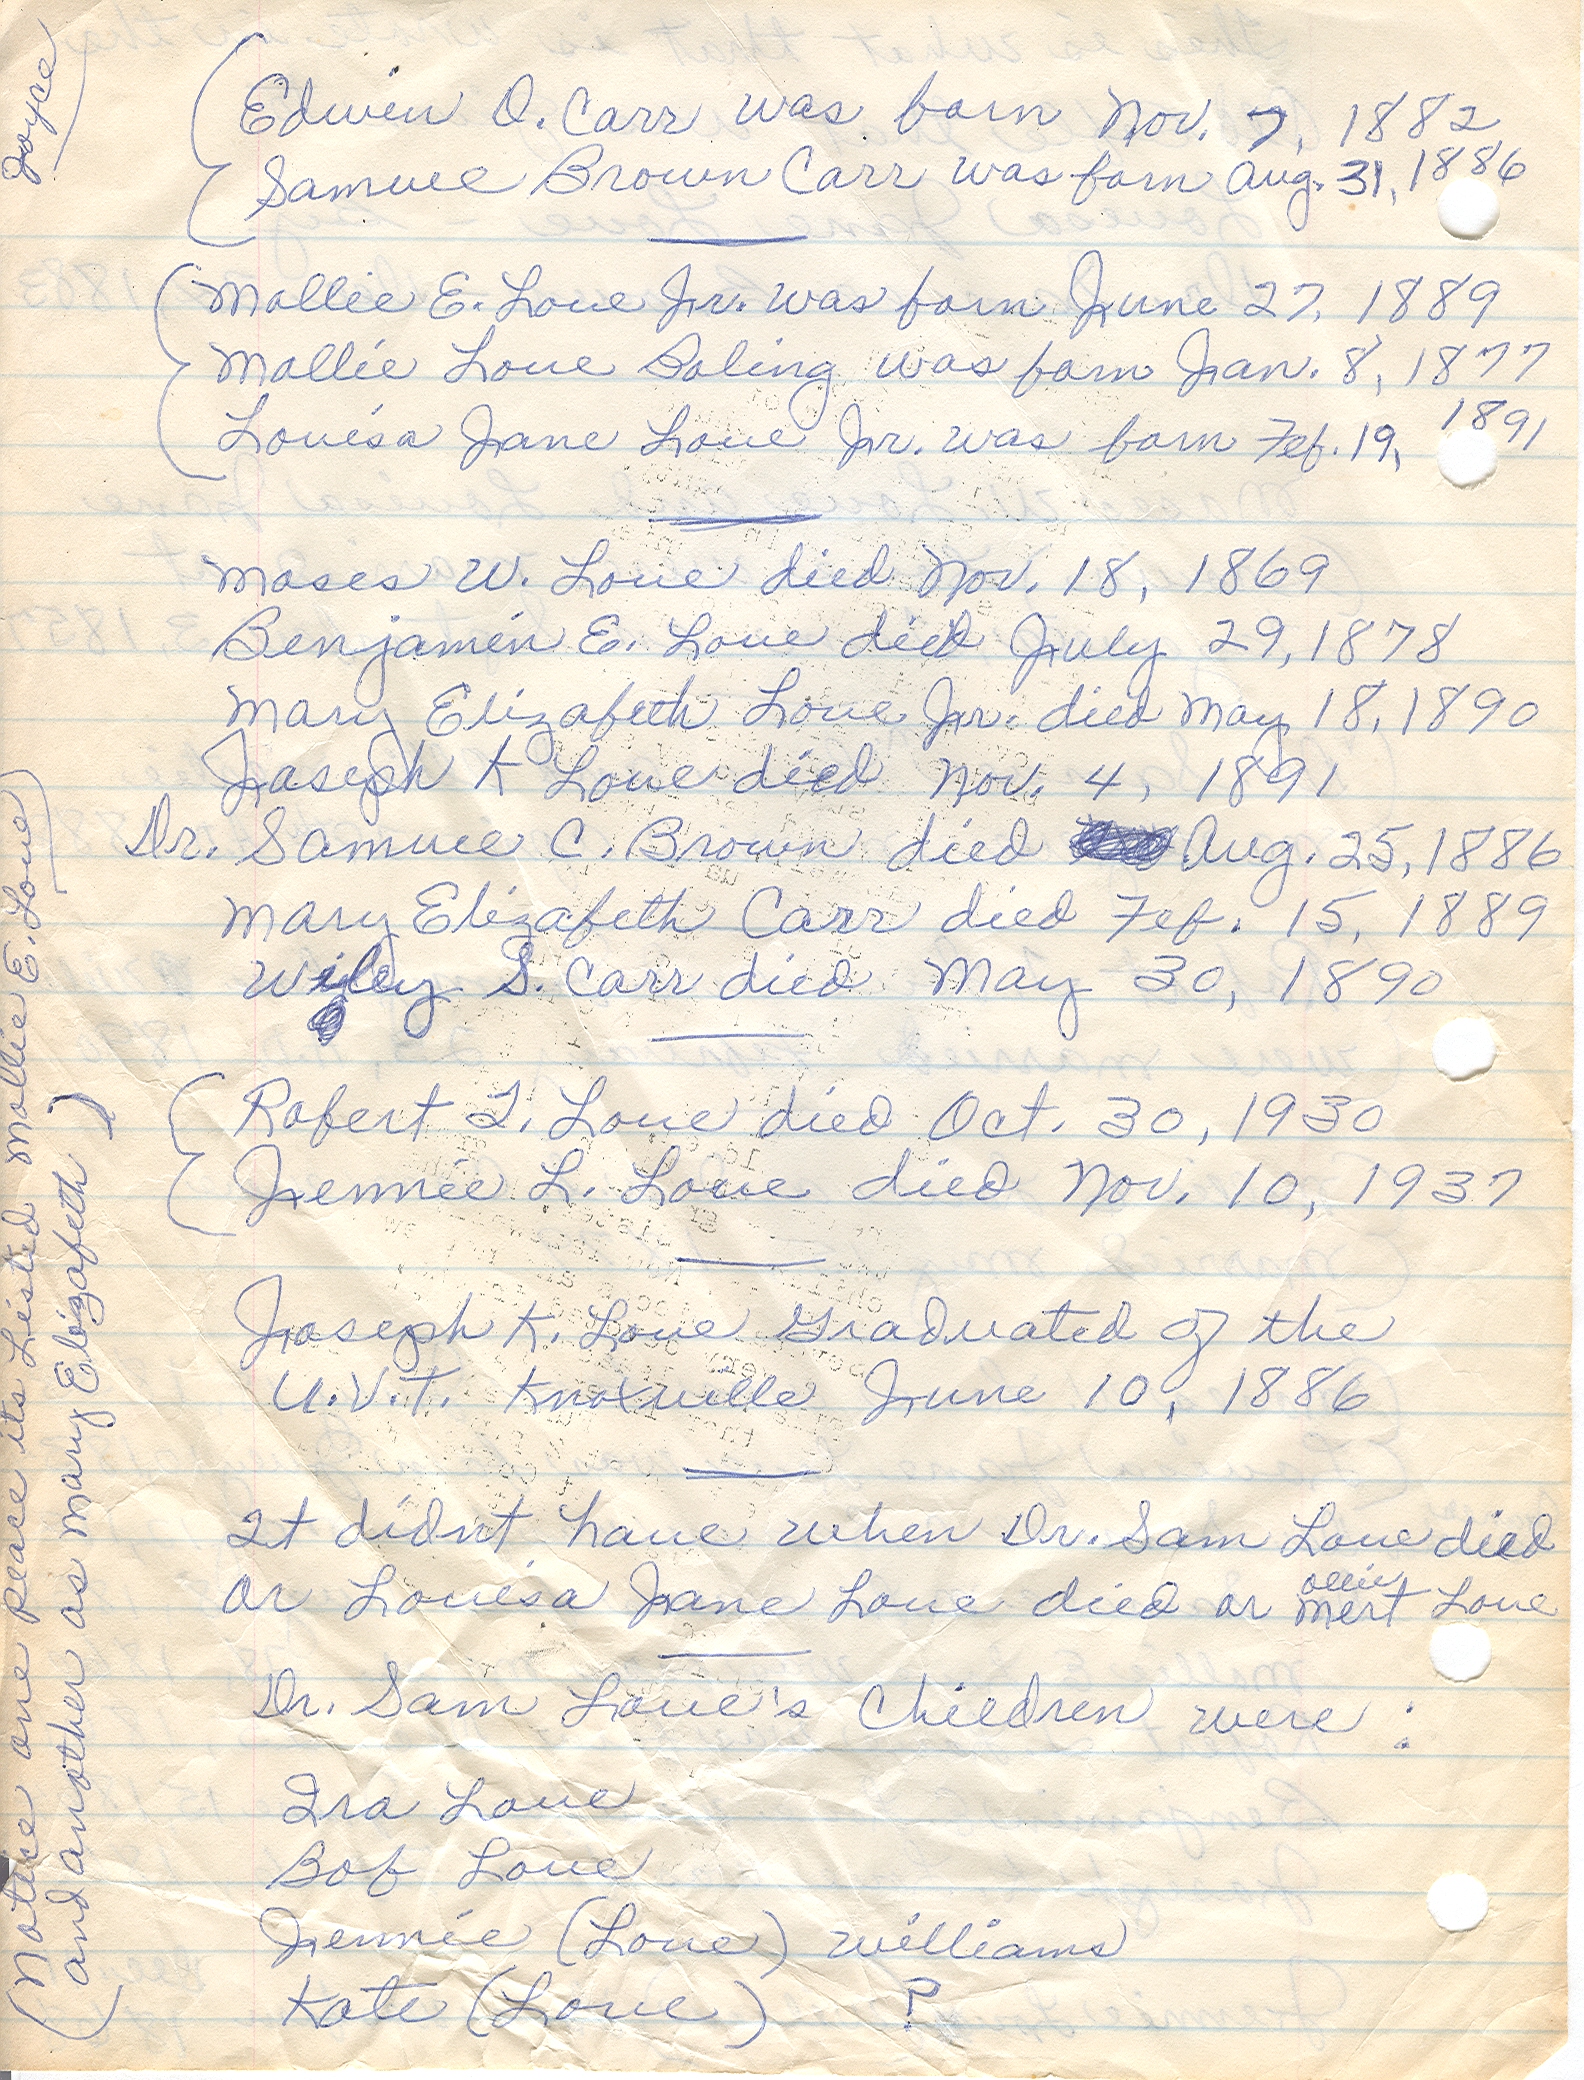 Edwin O. Carr was born Nov. 7, 1882
Samuel Brown Carr was born Aug. 31, 1886
Mollie E. Love Jr. was born June 27, 1889
Mollie Love Boling was born Jan. 8, 1877
Louisa Jane Love Jr. was born Feb. 19, 1891
Moses W. Love died Nov. 18, 1869
Benjamin E. Love died July 29, 1878
Mary Elizabeth Love Jr. died May 18, 1890
Joseph K Love died Nov. 4, 1891
Dr. Samuel C. Brown died Aug. 25, 1886
Mary Elizabeth Carr died Feb. 15, 1889
Wiley S. Carr died May 30, 1890
Robert T. Love died Oct. 30, 1930
Jennie L. Love died Nov. 10, 1937
Joseph K. Love Graduated of the
U.V.T. Knoxville June 10, 1886
It didnt have when Dr. Sam Love died
or Louisa Jane Love died or Mert Love
ollie
Dr. Sam Love's Children were :
Ira Love
Bob Love
Jennie (Love) Williams
Kate (Love) ?
(Notice one place its Listed Mollie E. Love)
and another as Mary Elizabeth )
Joyce